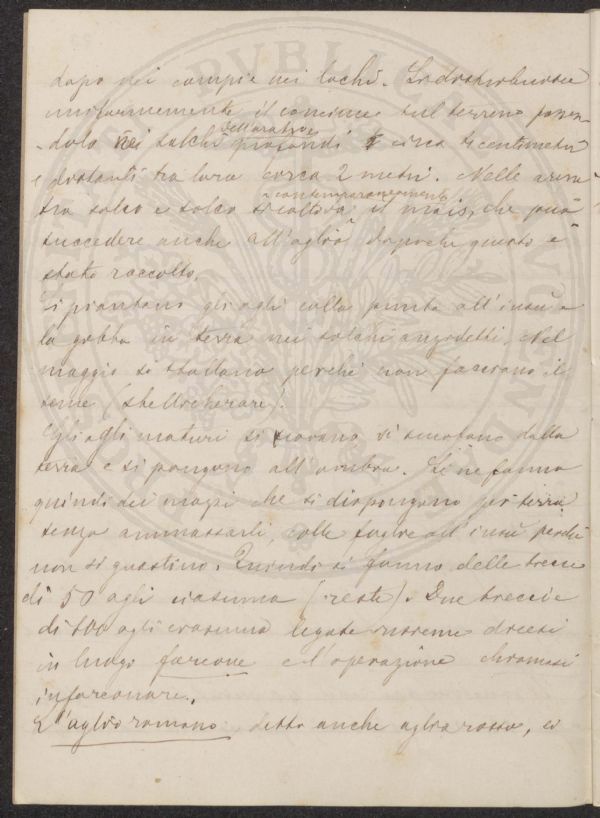 dapo nei campi e nei lochi. Si distribuisce
uniformemente il concime sul terreno ponen-
dolo nei solchi dell'aratro profondi circa centimetri
e distanti tra loro circa 2 metri. Nelle aree
tra solco e solco si coltiva contemporaneamente il mais, che può
succedere anche all'aglio dopoché questo è
stato raccolto.
Si piantano gli agli colla punta all'insù e
la gobba in terra nei solchi anzidetti. Nel
maggio si stallano perché non facciano il
seme (stellocherare).
Gli agli maturi si cavano, si scuotono dalla
terra e si pongono all'ombra. Se ne fanno
quindi dei mazzi che si dispongono per terra
senza ammassarli, colle foglie all'insù perché
non si guastino. Quindi si fanno delle trecce
di 50 agli ciascuna (reste). Due treccie
di agli ciascuna legate insieme dicesi
in luogo farcone e l'operazione chiamasi
infarconare.
L'aglio romano detto anche aglio rosso, ci